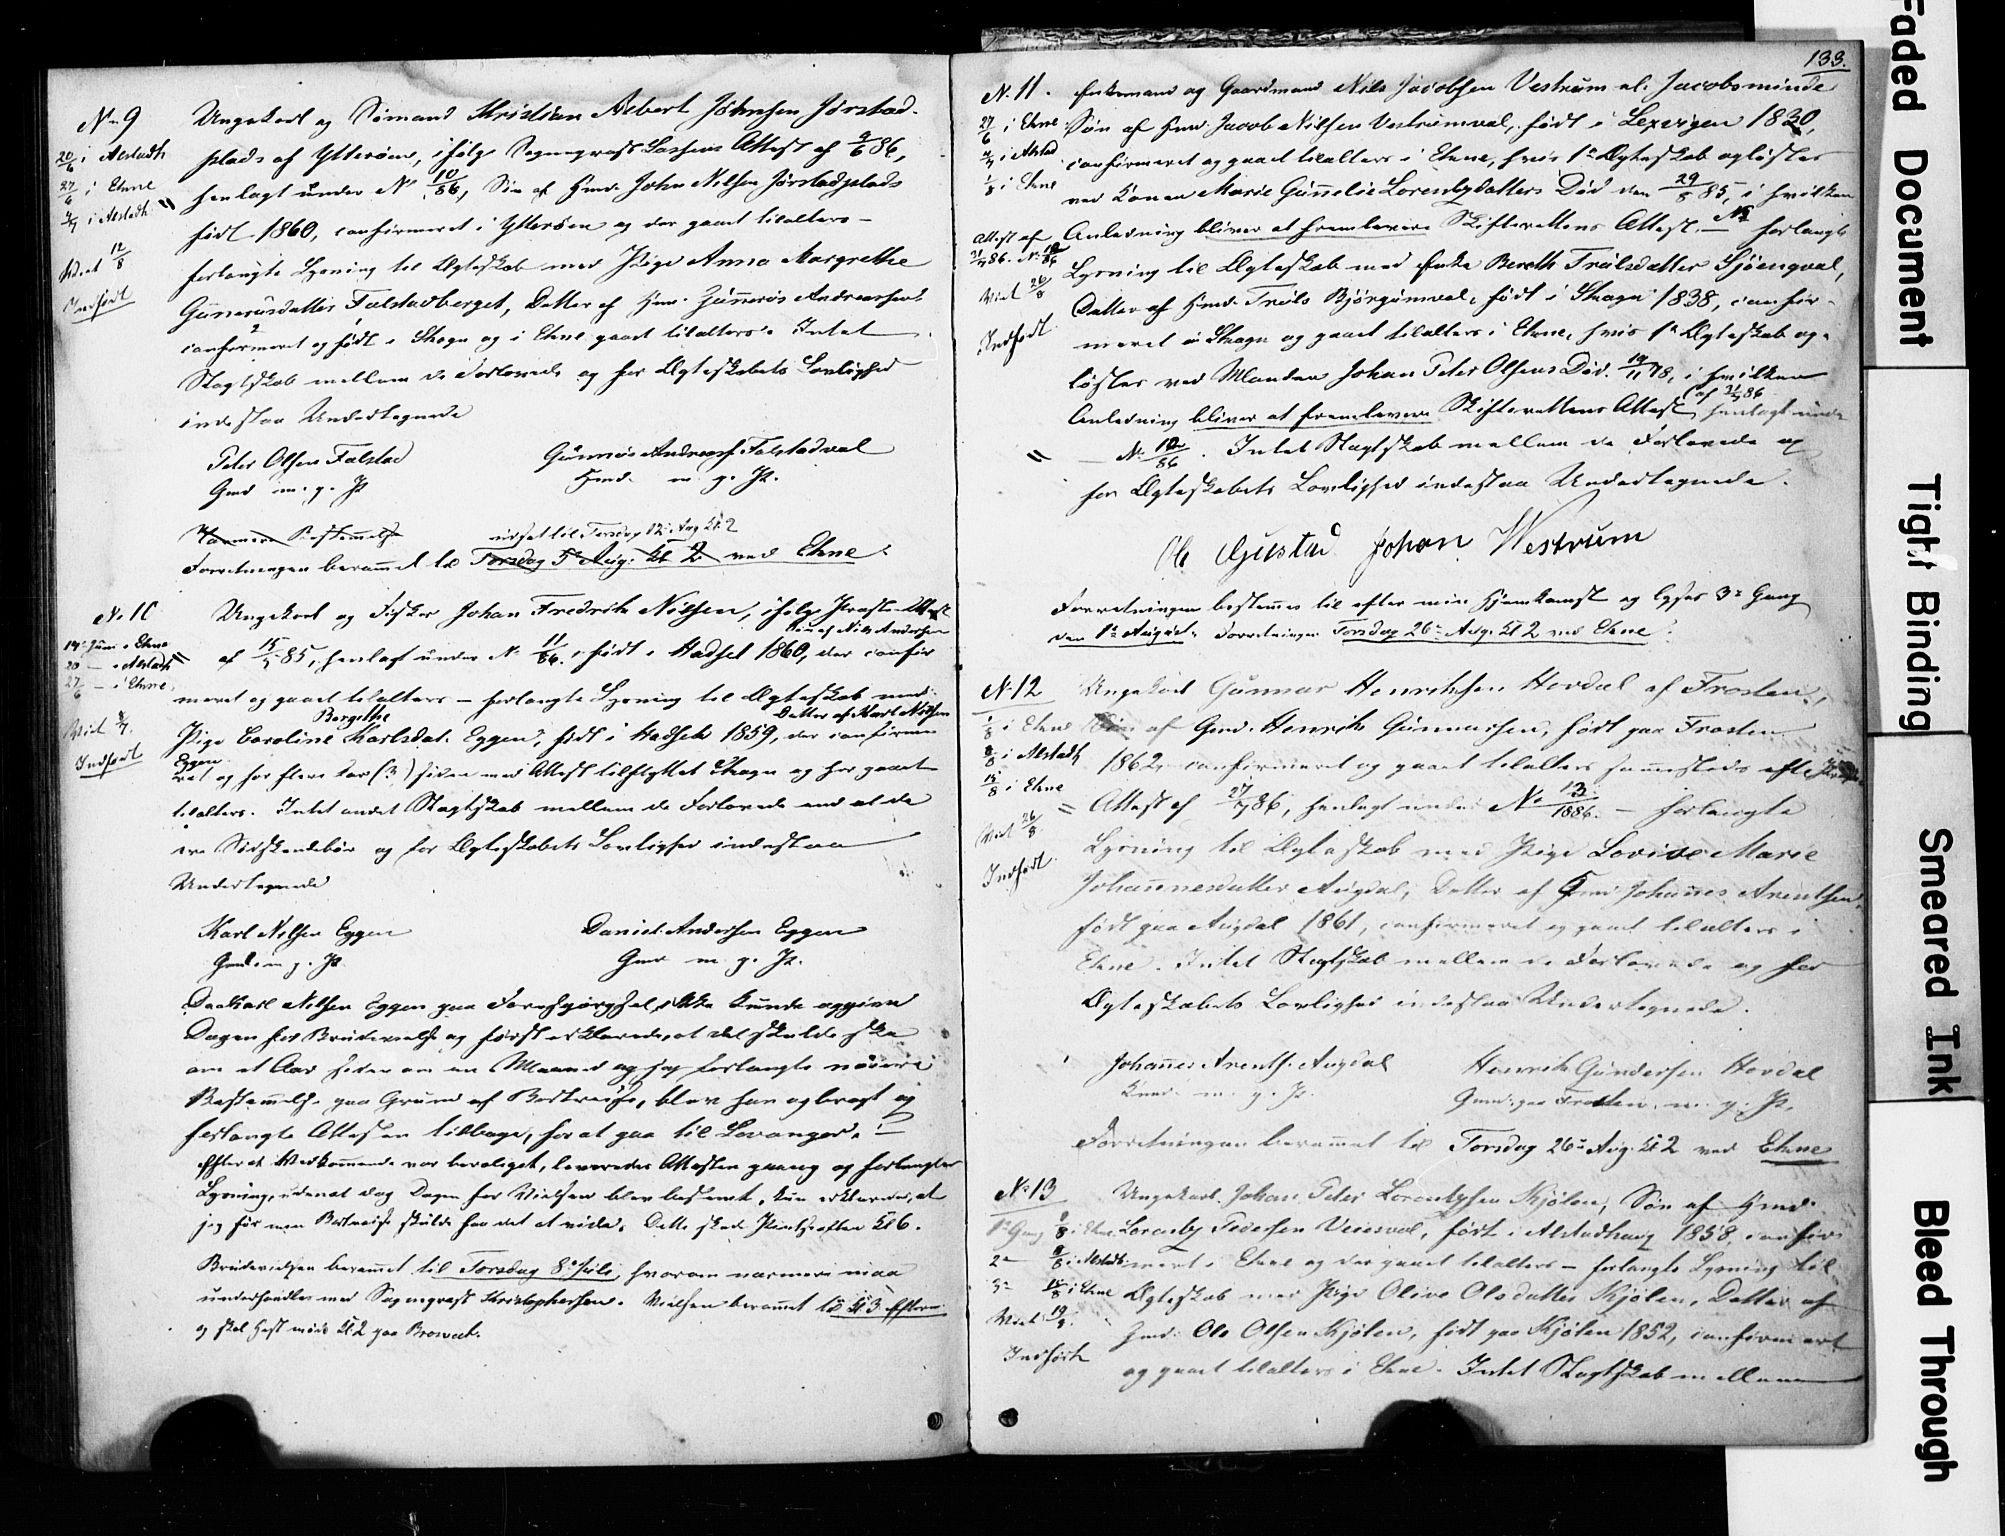 133.
No 9
20/6 i Alstadh
27/6 i Ekne
4/7 i Alstadh
Viet 12/8
Indført
Ungekarl og Sømand Christian Albert Johnsen Jørstad-
plads af Ytterøen, ifølge Sogneprest Attest af 9/6 86,
henlagt under No 10/86, Søn af Hmd. John Nilsen Jørstadplads
født 1860, confirmeret i Ytterøen og der gaaet tilalters –
forlangte Lysning til Ægteskab med Pige Anna Margrethe
Gunnerusdatter Falstadberget, Datter af Hmd. Gunnerus Andreassen
confirmeret og født i Skogn og i Ekne gaaet tilalters. Intet
Slægtskab mellem de Forlovede og for Ægteskabets Lovlighed
indestaa Undertegnede
Peter Olsen Falstad
Gmd m. p. P.
Gunnerus Andreass. Falstadval
Hmd. m. p. P.
Nærmere Bestemmelse
udsat til Torsdag 12 Aug Kl. 2
Forretningen berammet til Torsdag 5te Aug. Kl 2 ved Ekne.
No 10
14 Juni i Ekne
20 – i Alstadh
27/6 – i Ekne
Viet 8/7.
Indført
Ungekarl og Fisker Johan Fredrik Nilsen, ifølge Præste-Attest
Søn af Nils Andersen
af 15/ 85, henlagt under No 11/86, født i Hadsel 1860, der confir
meret og gaaet tilalters – forlangte Lysning til Ægteskab med
Bergithe
Datter af Karl Nilsen
Pige Caroline Karlsdat. Eggen, født i Hadsel 1859, der confirme
Eggen
ret og for flere Aar (3) siden med Attest tilflyttet Skogn og her gaaet
tilalters. Intet andet Slægtskab mellem de Forlovede end at de
ere Sødskendebørn og for Ægteskabets Lovlighed indestaa
Undertegnede
Karl Nilsen Eggen
Gmd. m. p. P.
Daniel Andersen Eggen
Gmd m. p. P.
Da Karl Nilsen Eggen paa Forespørgsel ikke kunde opgive
Dagen for Brudevielse og først erklærede, at det skulde ske
om et Aar siden om en Maaned og jeg forlangte nøiere
Bestemmelse paa Grund af Bortreise, blev han opbragt og
forlangte Attesten tilbage, for at gaa til Levanger. –
Efterat Vedkommende var beroliget, leveredes Attesten paany og forlangtes
Lysning, uden at dog Dagen for Vielsen blev bestemt, kun erklæredes, at
jeg før min Bortreise skulde faa det at vide. Dette skede Kl 6.
Brudevielsen berammet til Torsdag 8de Juli, hvorom nærmere maa
underhandles med Sogneprest Christophersen. Vielsen berammet til Kl 3 Efterm.
og skal Hest møde Kl. 2 paa
N. 11.
27/6 i Ekne
4/7 i Alstad
1/8 i Ekne
Attest af
21/7 86. No 12/86
Viet 26/8
Indført
Enkemand og Gaardmand Nils Jacobsen Vestrum el. Jacobsminde
Søn af Hmd. Jacob Nilsen Vestrumval, født i Lexvigen 1830,
confirmeret og gaaet tilalters i Ekne, hvis 1e Ægteskab opløstes
ved Konen Marie Gunnelie Lorentsdatters Død den 29/5 85, i hvilken
Anledning bliver at fremlevere Skifterettens Attest. – forlangte
Lysning til Ægteskab med Enke Bereth Trulsdatter Sjøengval,
Datter af Hmd. Truls Bjørgumval, født i Skogn 1838, confir-
meret i Skogn og gaaet tilalters i Ekne, hvis 1e Ægteskab op-
løstes ved Manden Johan Peter Olsens Død 14/11 78, i hvilken
af 21/7 86
Anledning bliver at fremlevere Skifterettens Attest, henlagt under
– No 12/86. Intet Slægtskab mellem de Forlovede og
for Ægteskabets Lovlighed indestaa Undertegnede.
Ole Gustad Johan Westrum
Forretningen bestemmes til efter min Hjemkomst og lyses 3e Gang
den 1e August. Forretningen Torsdag 26e Aug. Kl 2 ved Ekne.
N. 12
1/8 i Ekne
8/8 i Alstadh
15/8 i Ekne
Viet 26/8.
Indført
Ungekarl Gunnar Henriksen Hovdal af Frosten,
Søn af Gmd. Henrik Gunnarsen, født paa Frosten
1862, confirmeret og gaaet tilalters sammesteds efter
Attest af 27/7 86, henlagt under No 13/1886. – forlangte
Lysning til Ægteskab med Pige Lovise Marie
Johannesdatter Augdal, Datter af Gmd Johannes Arentsen
født paa Augdal 1861, confirmeret og gaaet tilalters i
Ekne. Intet Slægtskab mellem de Forlovede og for
Ægteskabets Lovlighed indestaa Undertegnede.
Johannes Arents. Augdal
m. p. P.
Henrik Gundersen Hovdal
Gmd. paa Frosten. m. p. P.
Forretningen berammet til Torsdag 26e Aug. Kl 2 ved Ekne
No 13
1e Gang 1/8 i Ekne
2e 8/8 i Alstadh
3e 15/8 i Ekne
Viet 19/8.
Indført
Ungekarl Johan Peter Lorentsen Kjølen, Søn af Hmd.
Lorents Pedersen Veiesval, født i Alstadhaug 1858, confir
meret i Ekne og der gaaet tilalters – forlangte Lysning til
Ægteskab med Pige Olive Olsdatter Kjølen, Datter af
Hmd. Ole Olsen Kjølen, født paa Kjølen 1852, confirmeret
og gaaet tilalters i Ekne. Intet Slægtskab mellem
Faded Document
Tight Binding
Smeared Ink
Bleed Through